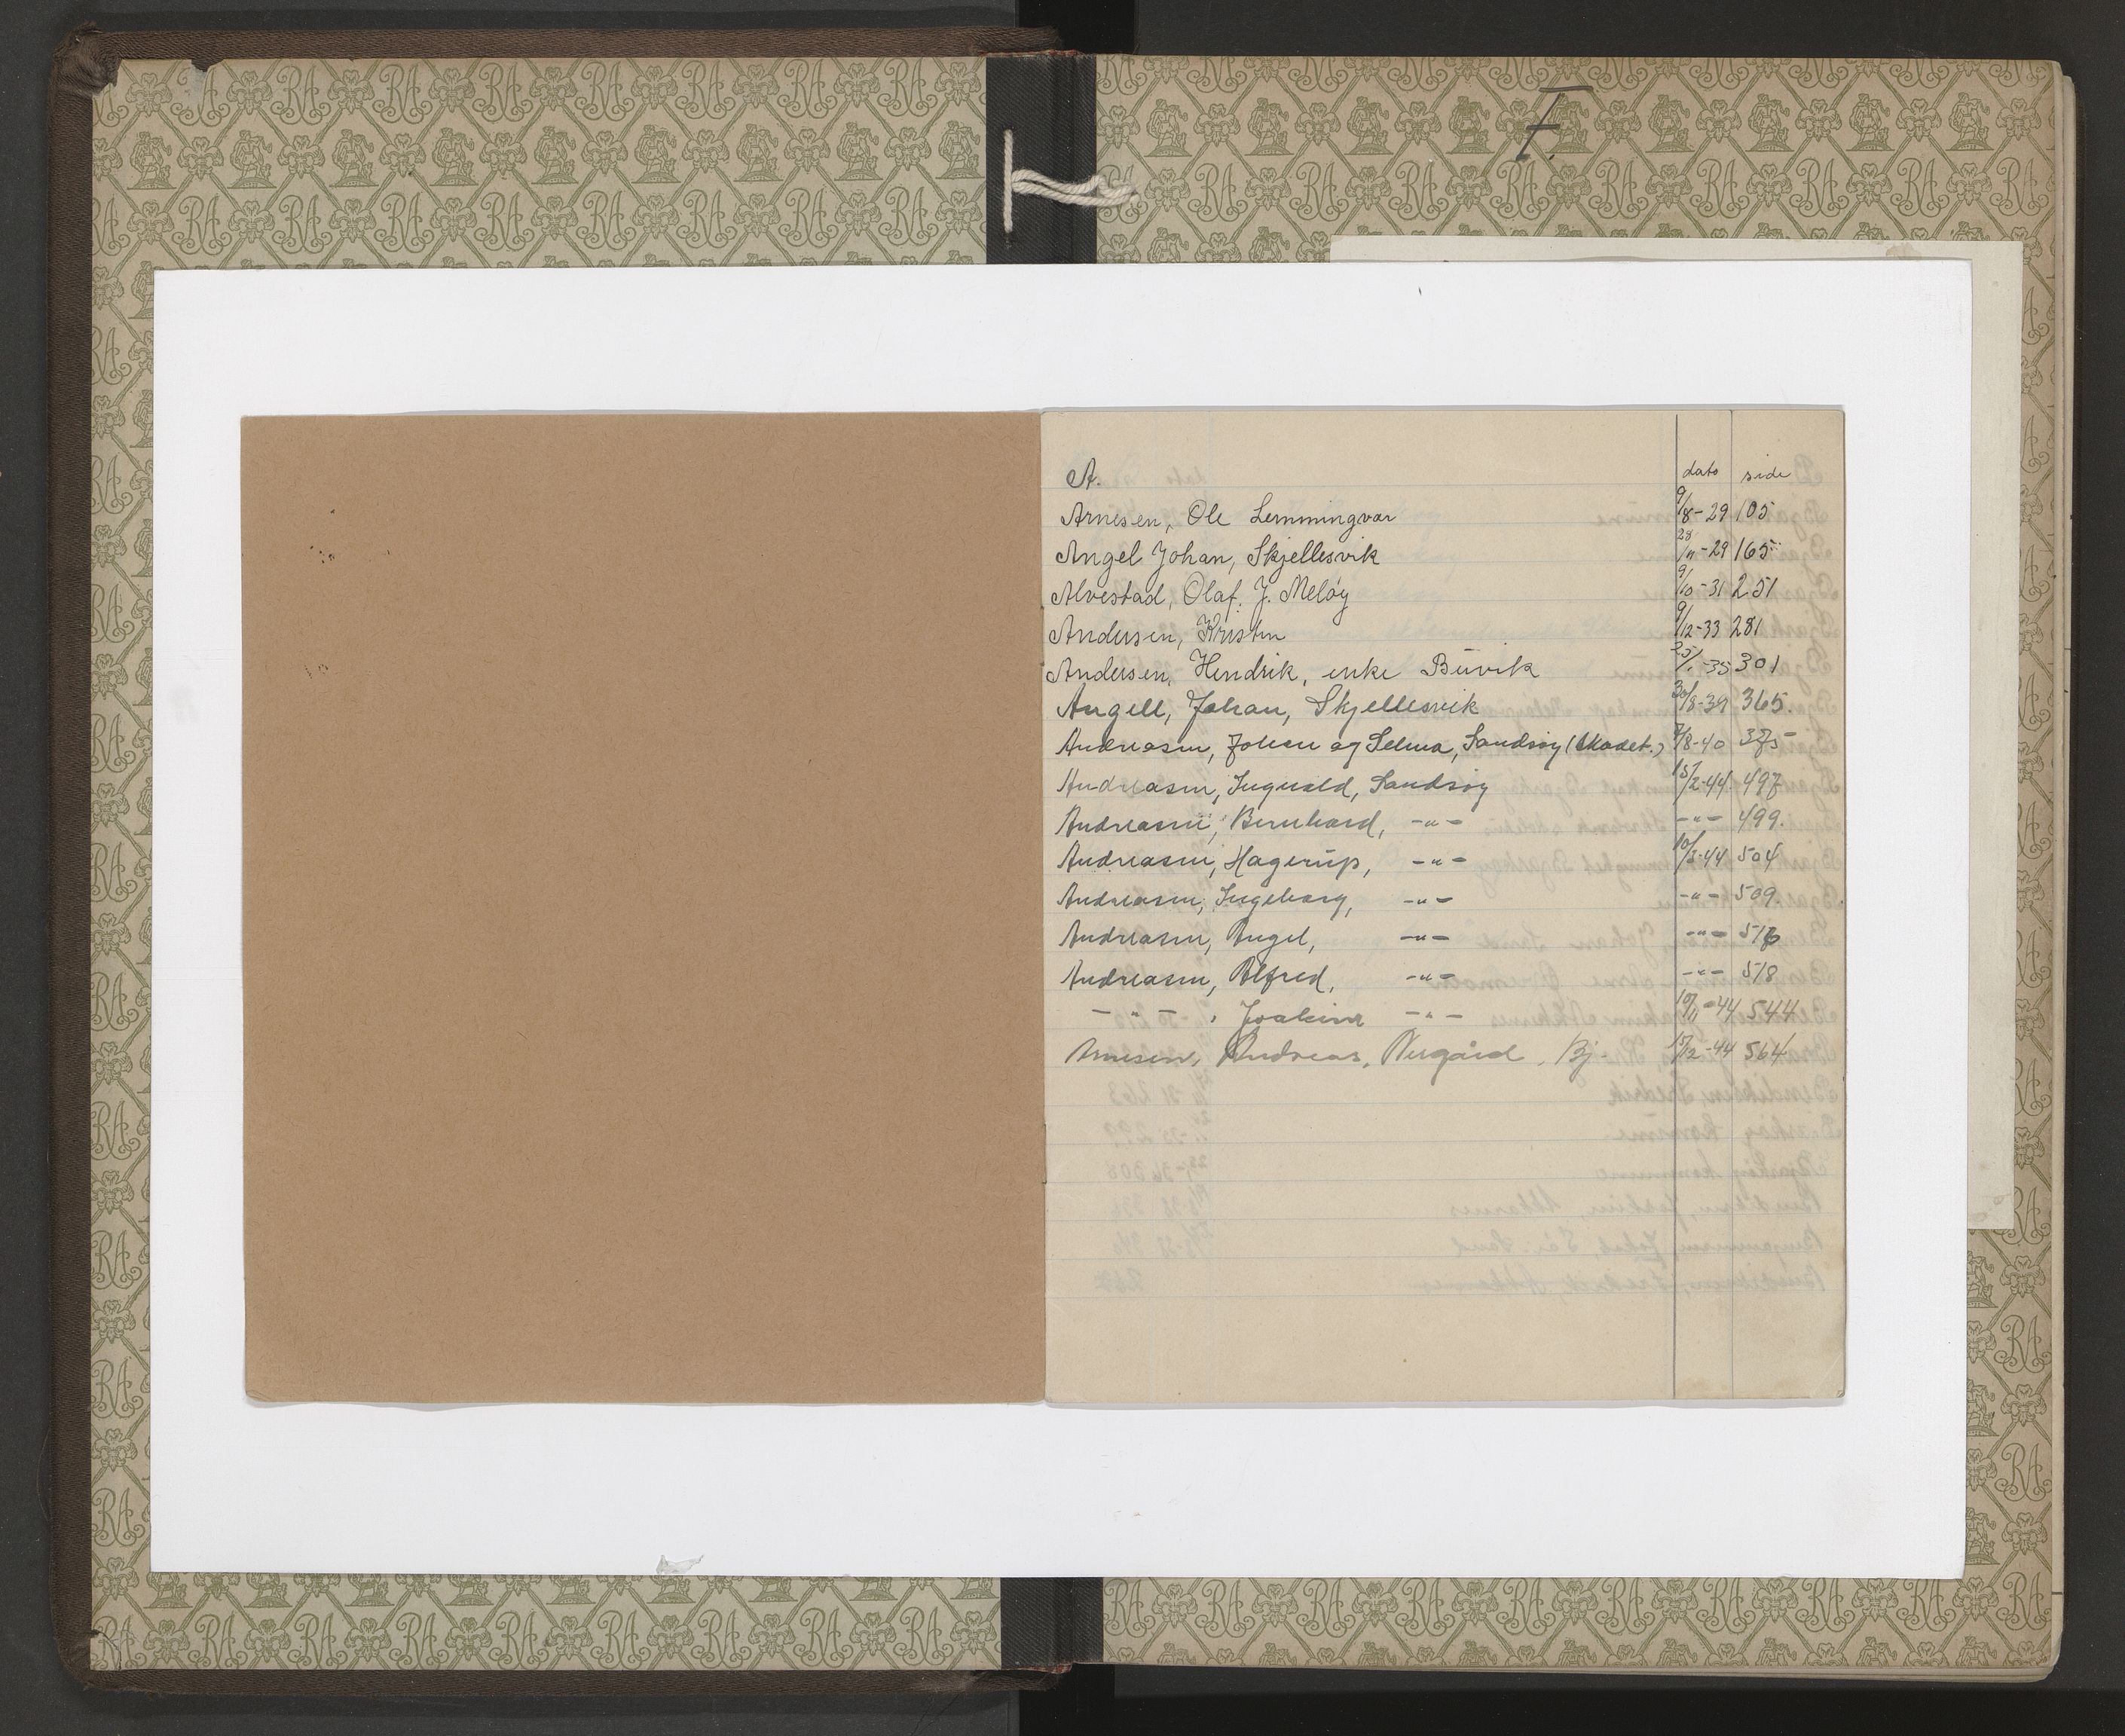 F.
A. dato side
Arnesen, Ole Lemmingvær 9/8-29 105
Angel Johan, Skjellesvik 28/11-29 165
Alvestad, Olaf. J. Meløy 9/10-31 251
Andersen, Kristin 9/12-33 281
Andersen, Hendrik, enke Buvik 25/1-35 301
Angell, Johan, Skjellesvik 30/8-39 365.
Andreasen, Johan og Selma, Sandsøy (Skadet.) 7/8-40 375
Andreasen, Ingvald, Sandsøy 15/2-44 497
Andreasen, Bernhard, -"- -"- 499.
Andreasen, Hagerup, -"- 10/3-44 504
Andreasen, Ingeborg, -"- -"- 509.
Andreasen, Angel, -"- -"- 513
Andreasen, Alfred, -"- -"- 518
-"- , Joakim -"- 10/11-44 544
Arnesen, Andreas, Nergård, Bj. 15/12-44 564